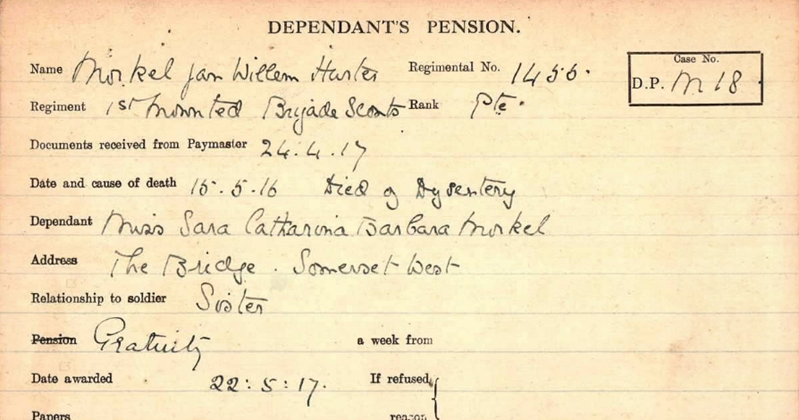 DEPENDANT'S PENSION.
Name Morkel Jan Willem Hurter Regimental No. 1456.
Case No.
D.P. M 18
Regiment 1st Mounted Brigade Scouts Rank Pte.
Documents received from Paymaster 24.4.17
Date and cause of death 15.5.16 Died of Dysentery
Dependant Miss Sara Catharina Barbara Morkel
Address The Bridge. Somerset West
Relationship to soldier Sister
Pension Gratuity a week from
Date awarded 22:5:17. If refused,
Papers reason